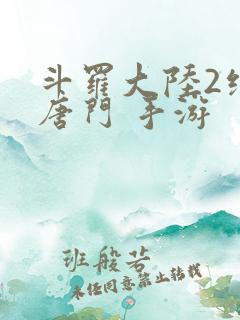 斗羅大陸2絕
唐門 手游
班般若
未经同意禁止转载